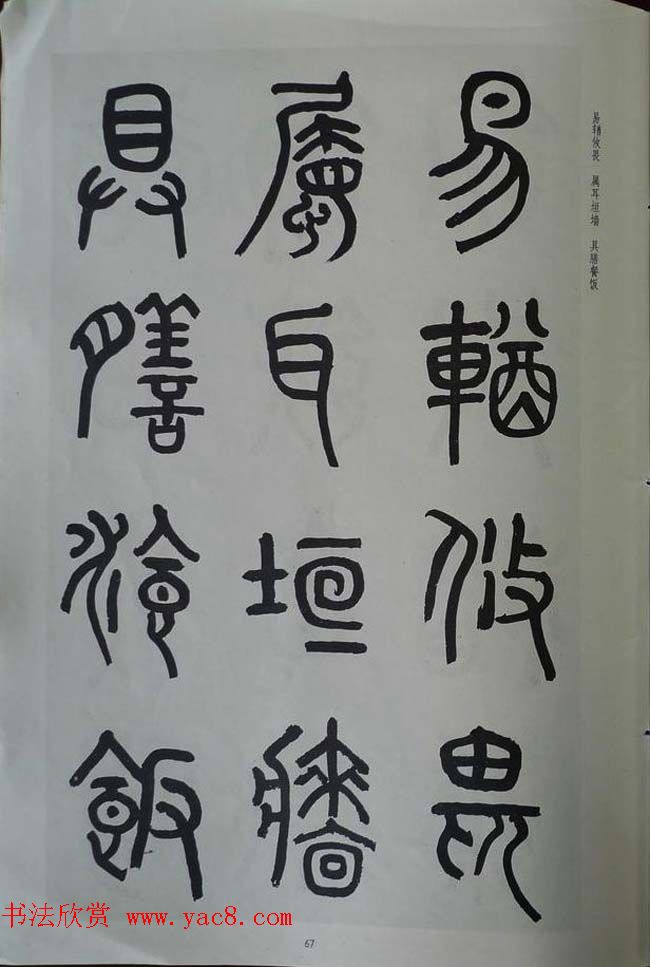 易輶攸畏
屬耳垣牆
具膳飡飯
易輶攸畏 属耳垣墙 具膳餐饭
书法欣赏 www.yac8.com
67